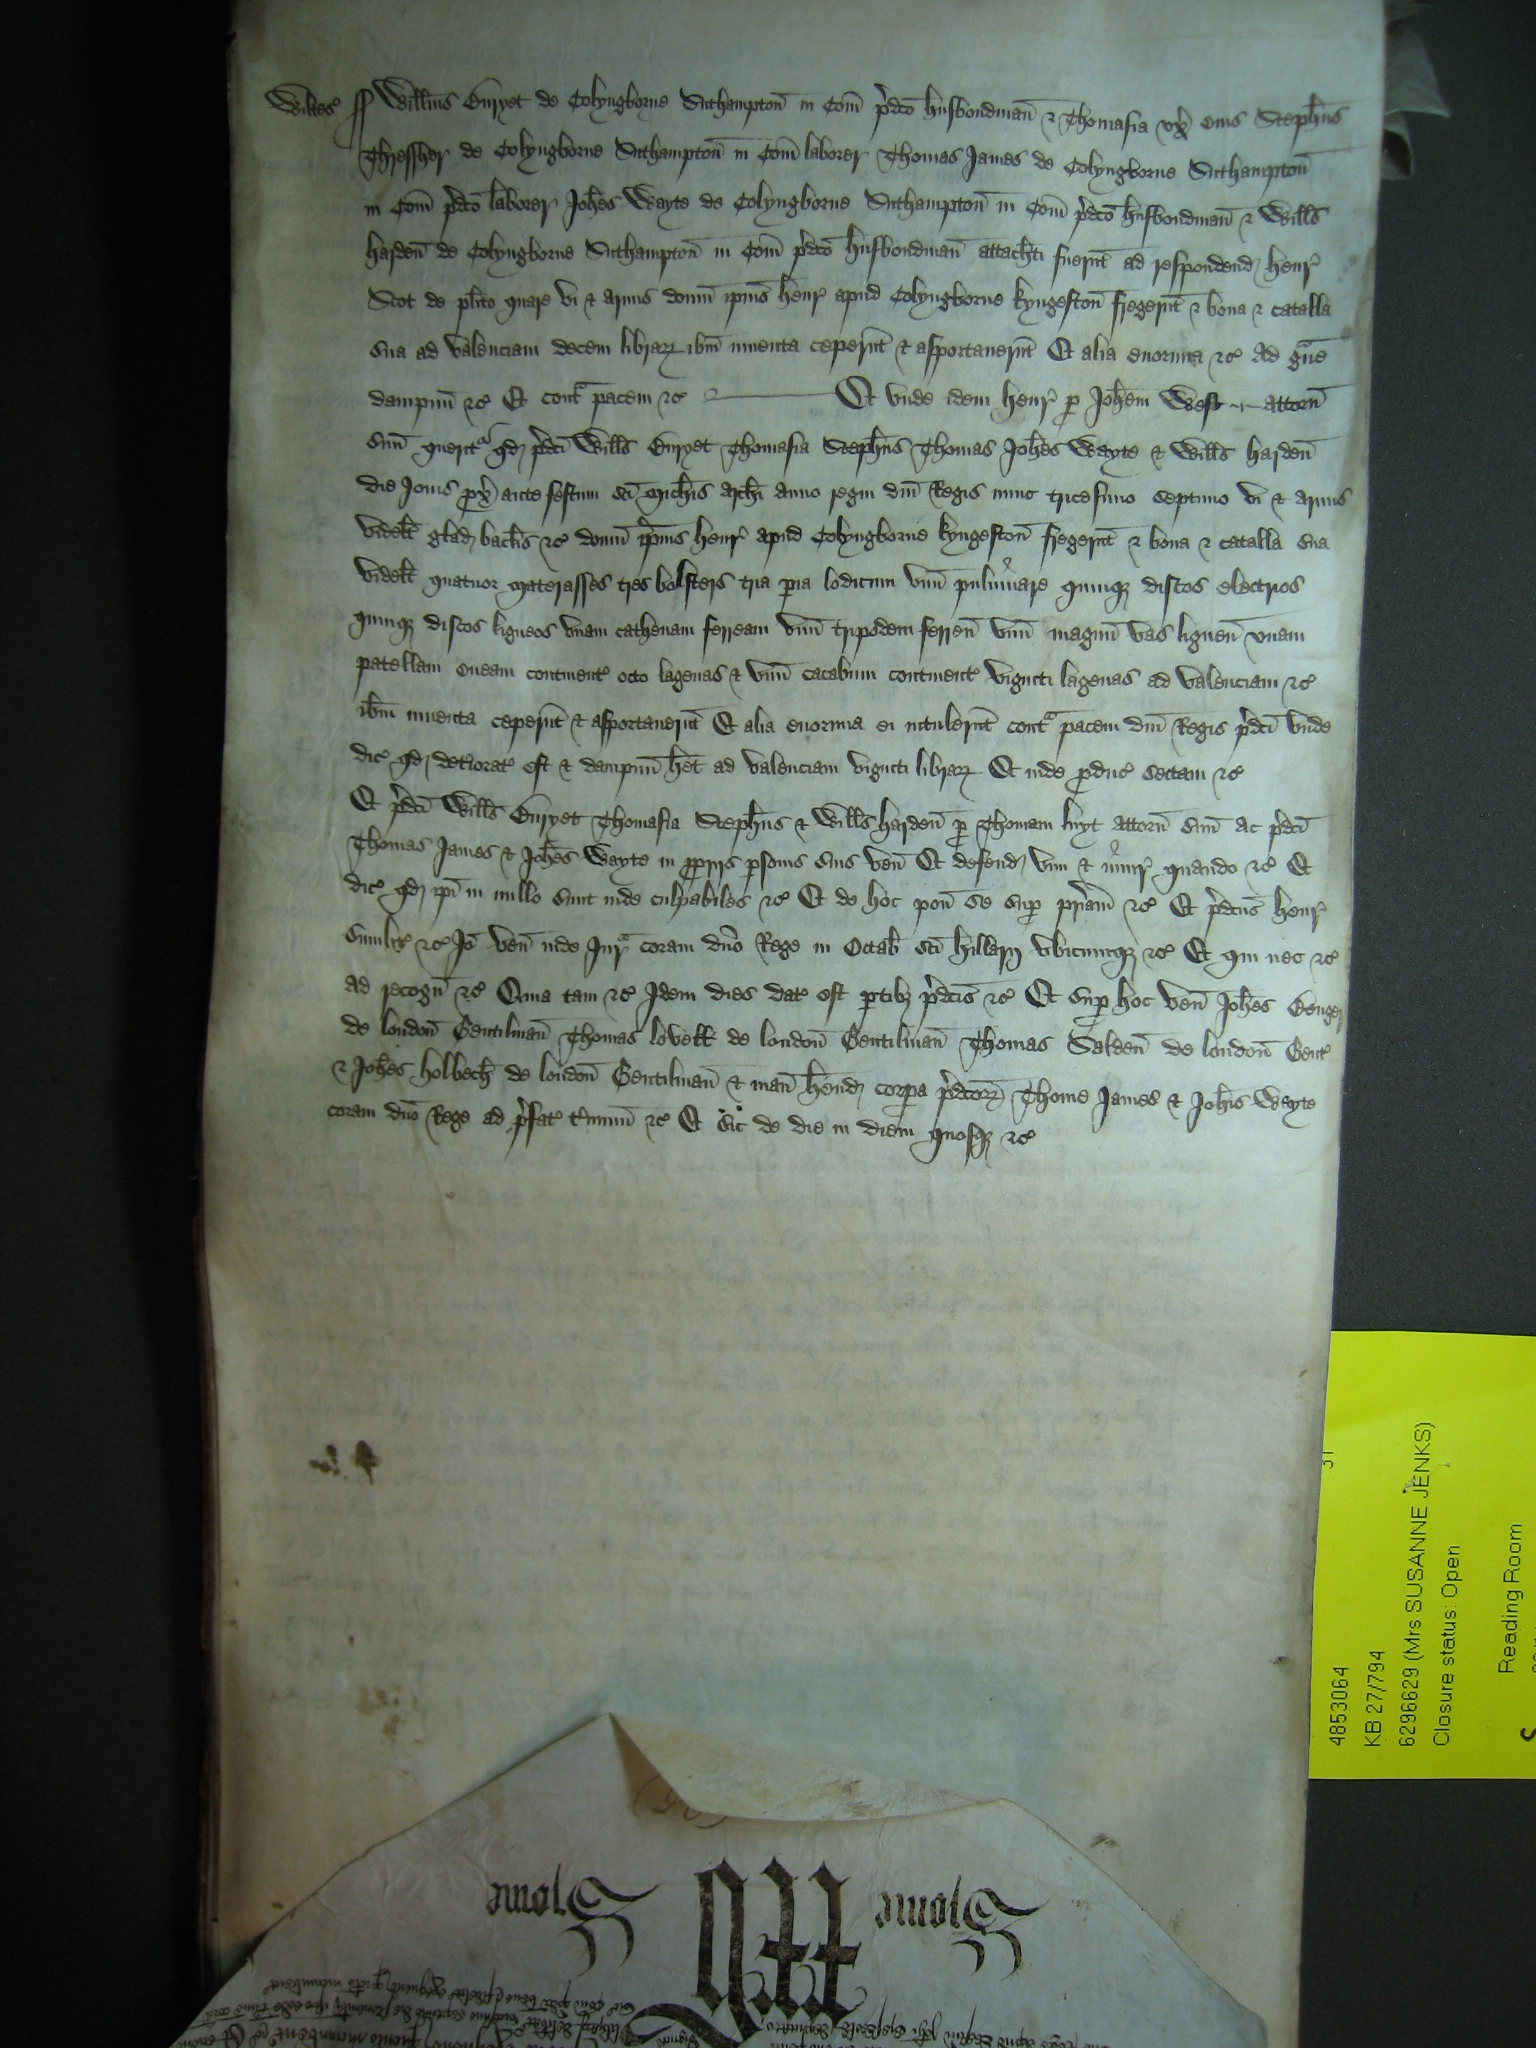 Wiltes' ss Willms Buryet de Colyngborne Suthampton in Com pdco husbondman & Thomasia ux eius Stephus
Thressher de Colyngborne Suthampton in Com laborer Thomas James de Colyngborne Suthampton
in Com pdco laborer Johes Wayte de Colyngborne Suthampton in Com pdco husbondman & Wills
Harden de Colyngborne Suthampton in Com pdco husbondman attachti fuerut ad respondend Henr
Scot de plito quare vi & armis domu ipius Henr apud Colyngborne Kyngeston fregerut & bona & catalla
sua ad valenciam decem librar ibm inventa ceperut & asportaverut Et alia enormia &c Ad gve
dampnu &c Et cont pacem &c Et unde idem Henr p Johem West attorn
suu querit qd pdci Wills Buryet Thomasia Stephus Thomas Johes Wayte & Wills Harden
die Jovis px ante festum sci Michis Archi anno regni dni Regis nunc tricesimo septimo vi & armis
videlt glad baclis &c domu ipius Henr apud Colyngborne Kyngeston fregerut & bona & catalla sua
videlt quatuor materasses tres bolsters tria pia lodicum unu pulvinare quinq discos electrios
quinq discos ligneos unam cathenam ferream unu tripodem ferreu unu magnu vas ligneu unam
patellam eneam continent octo lagenas & unu cacabum continent viginti lagenas ad valenciam &c
ibm inventa ceperut & asportaverut Et alia enormia ei intulerut cont pacem dni Regis pdci unde
dic qd deteriorat est & dampnu het ad valenciam viginti librar Et inde pduc sectam &c
Et pdci Wills Buryet Thomasia Stephus & Wills Harden p Thomam luyt attorn suu ac pdci
Thomas James & Johes Wayte in ppriis psonis suis ven Et defend vim & iniur quando &c Et
dic qd ipi in nullo sunt inde culpabiles &c Et de hoc pon se sup priam &c Et pdcus Henr
similit &c Jo ven inde Jur coram dno Rege in Octab sci Hillarij ubicumq &c Et qui nec &c
ad recogn &c Quia tam &c Idem dies dat est ptib pdcis &c Et sup hoc ven Johes Genger
de london Gentilman Thomas lovell de london Gentilman Thomas Salden de london Gent
& Johes Holbech de london Gentilman & man hend corpa pdcor Thome James & Johis Wayte
coram dno Rege ad pfat tminu &c Et sic de die in diem quousq &c
4853064 31
KB 27/794
6296629 (Mrs SUSANNE JENKS)
Closure status: Open
Reading Room